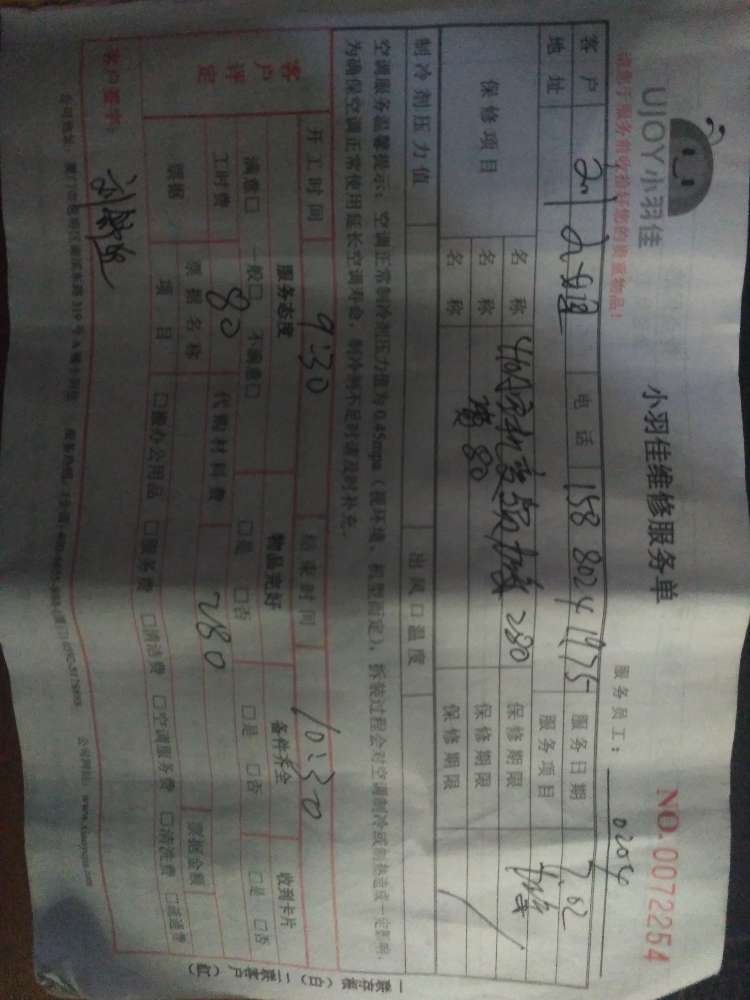 UJOY小羽佳
小羽佳维修服务单
NO. 0072254
请您于服务前收拾好您的贵重物品!
服务员工:
客户
电话 158 8024 1975 服务日期 7.02
地址
服务项目 加氟
保修项目 名称 280 保修期限
名称 费80 保修期限
名称 保修期限
制冷剂压力值 出风口温度
空调服务温馨提示:空调正常制冷剂压力值为0.45mpa(视环境、机型而定),拆装过程会对空调制冷或制热造成一定影响,
为确保空调正常使用延长空调寿命,制冷剂不足时请及时补充。
开工时间 9:30 结束时间 10:30
客户评定 服务态度 物品完好 备件齐全 收到卡片
满意□ 一般□ 不满意□ □是 □否 □是 □否 □是 □否
工时费 80 代购材料费 280
票据 票据名称 票据金额
项目 □搬办公用品 □服务费 □清洁费 □空调服务费 □清洗费 □疏通费
客户签字:
一联存根(白)二联客户(红)